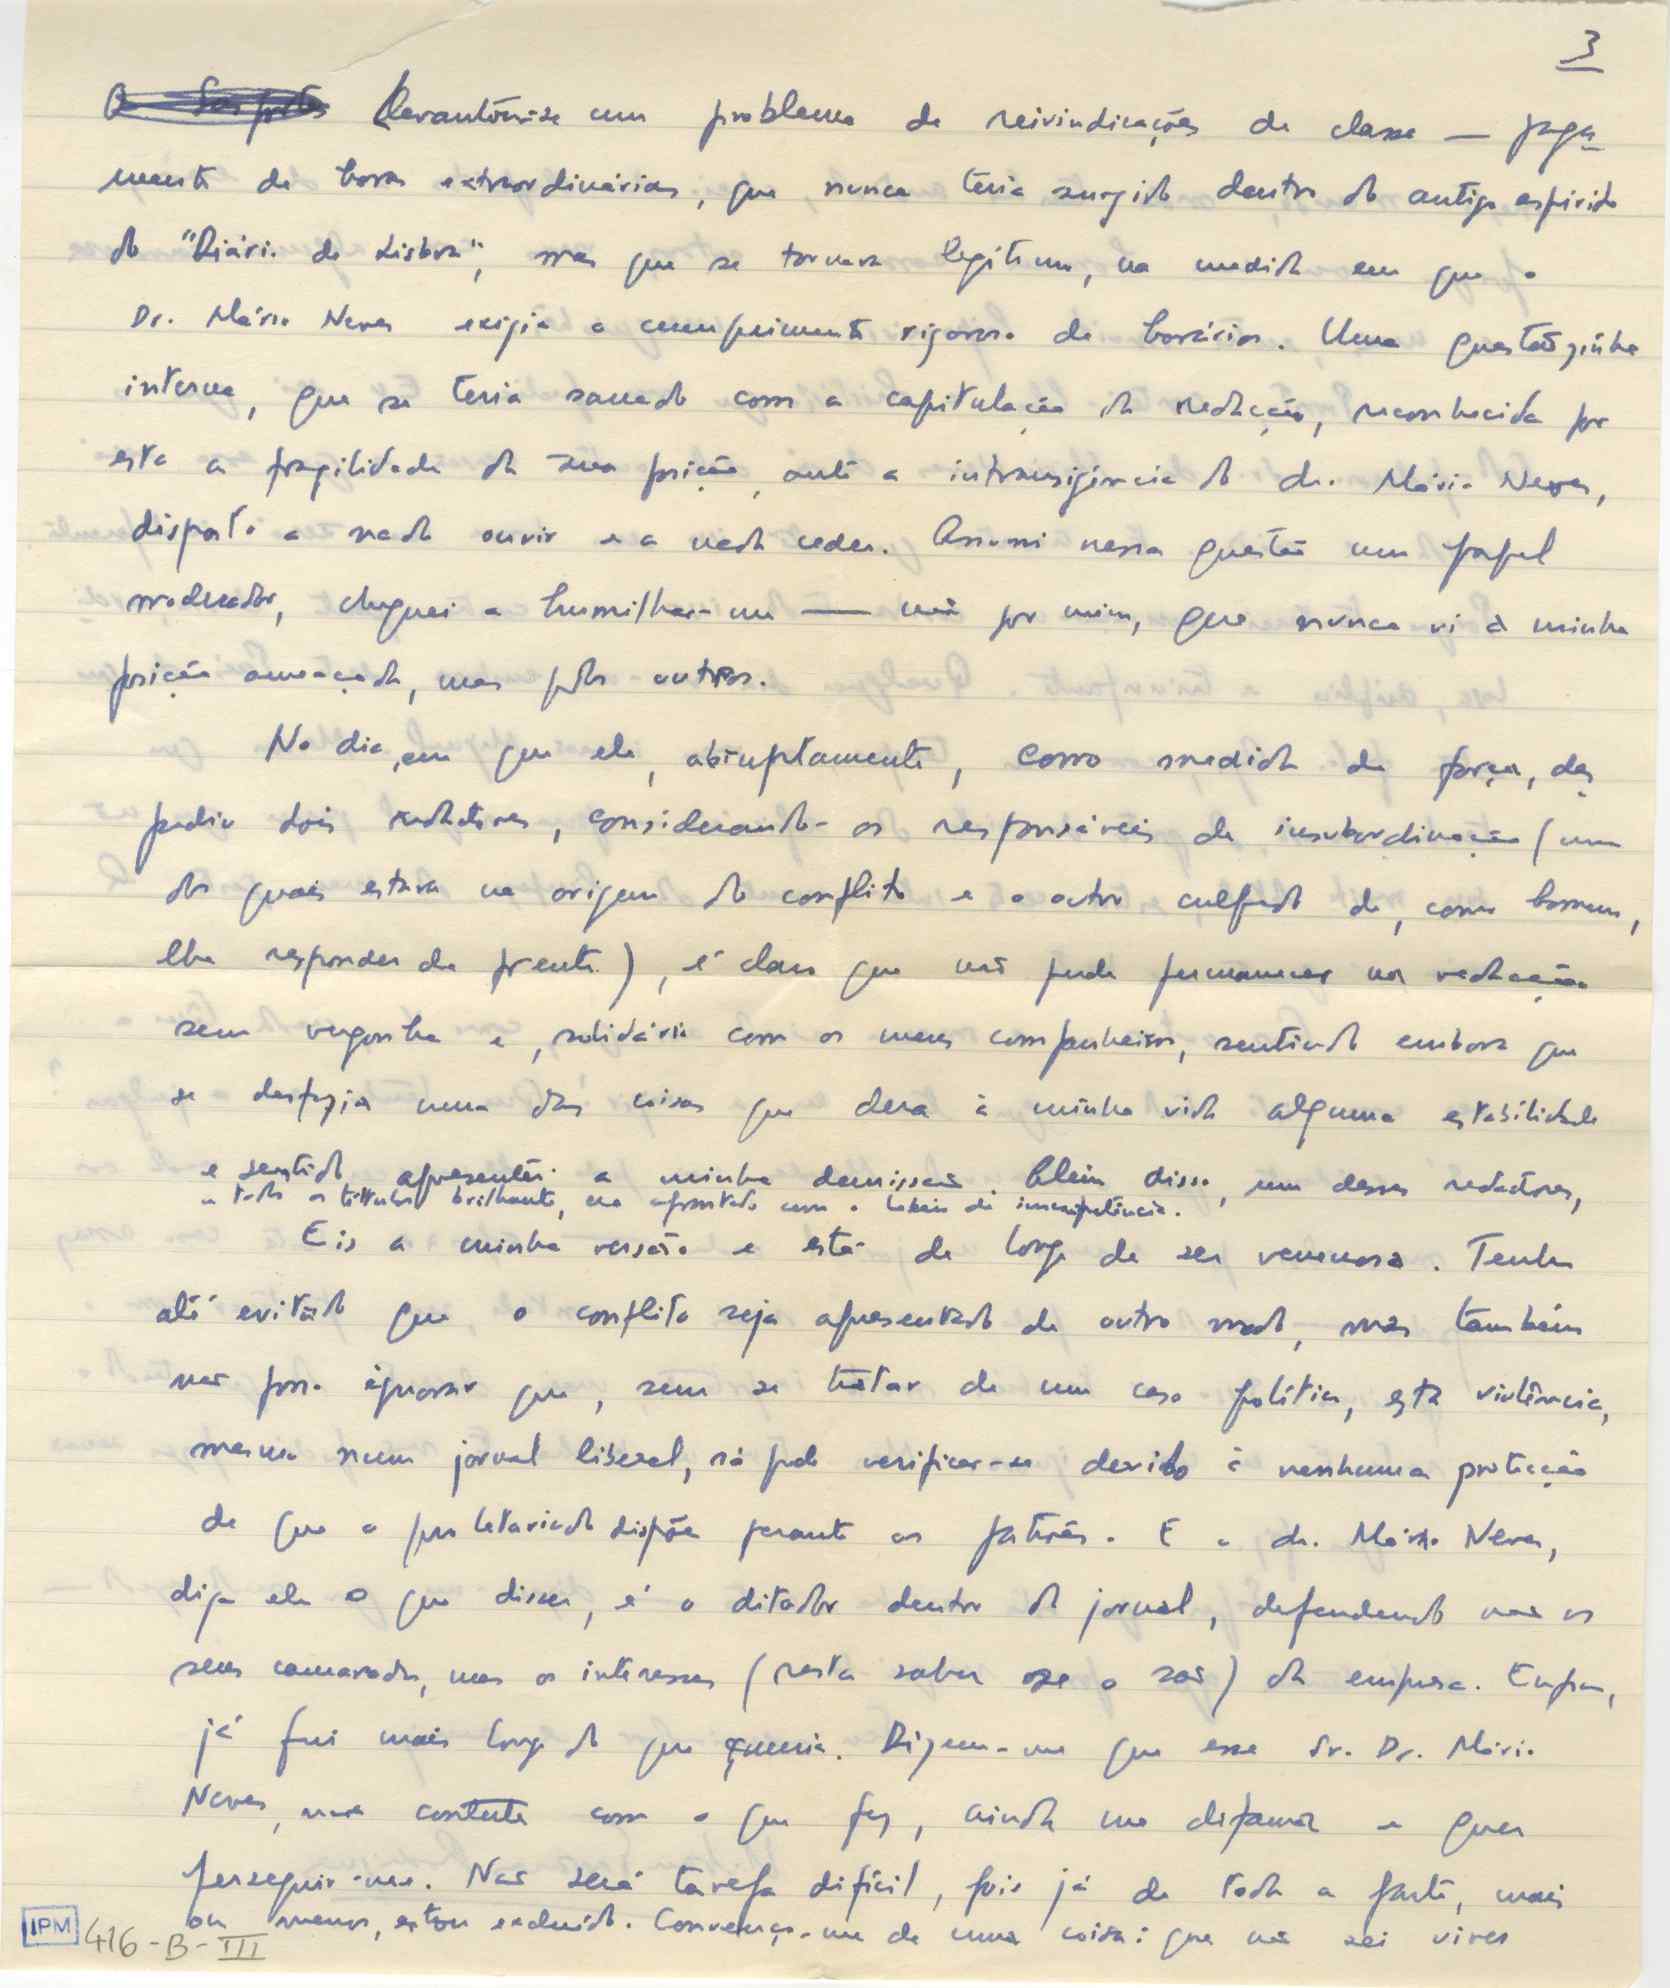 3
Levantou-se um problema de reivindicações de classe — paga-
mento de horas extraordinárias, que nunca teria surgido dentro do antigo espírito
do "Diário de Lisboa", mas que se tornava legítimo, na medida em que o
Dr. Mário Neves exigia o cumprimento rigoroso de horários. Uma questãozinha
interna, que se teria sanado com a capitulação da redacção, reconhecida por
esta a fragilidade da sua posição, ante a intransigência do dr. Mário Neves,
disposto a nada ouvir e a nada ceder. Assumi nessa questão um papel
moderador, cheguei a humilhar-me — não por mim, que nunca vi a minha
posição ameaçada, mas pelos outros.
No dia, em que ele, abruptamente, como medida de força, des-
pediu dois redatores, considerando-os responsáveis de insubordinação (um
dos quais estava na origem do conflito e o outro culpado de, como homem,
lhe responder de frente), é claro que não pude permanecer na redacção
sem vergonha e, solidário com os meus companheiros, sentindo embora que
se desfazia uma das coisas que dera à minha vida alguma estabilidade
e sentido apresentei a minha demissão. Além disso, um desses redatores,
a todos os títulos brilhante, era afrontado com o labéu de incompetência.
Eis a minha versão e está de longe de ser venenosa. Tenho
até evitado que o conflito seja apresentado de outro modo, mas também
não posso ignorar que, sem se tratar de um caso político, esta violência,
mesmo num jornal liberal, só pode verificar-se devido à nenhuma protecção
de que o proletariado dispõe perante os patrões. E o dr. Mário Neves,
diga ele o que disser, é o ditador dentro do jornal, defendendo não os
seus camaradas, mas os interesses (resta saber se o são) da empresa. Enfim,
já fui mais longe do que queria. Dizem-me que esse Sr. Dr. Mário
Neves, não contente com o que fez, ainda me difama e quer
perseguir-me. Não será tarefa difícil, pois já de toda a parte, mais
ou menos, estou excluído. Convenço-me de uma coisa: que não sei viver
IPM
416-B-III